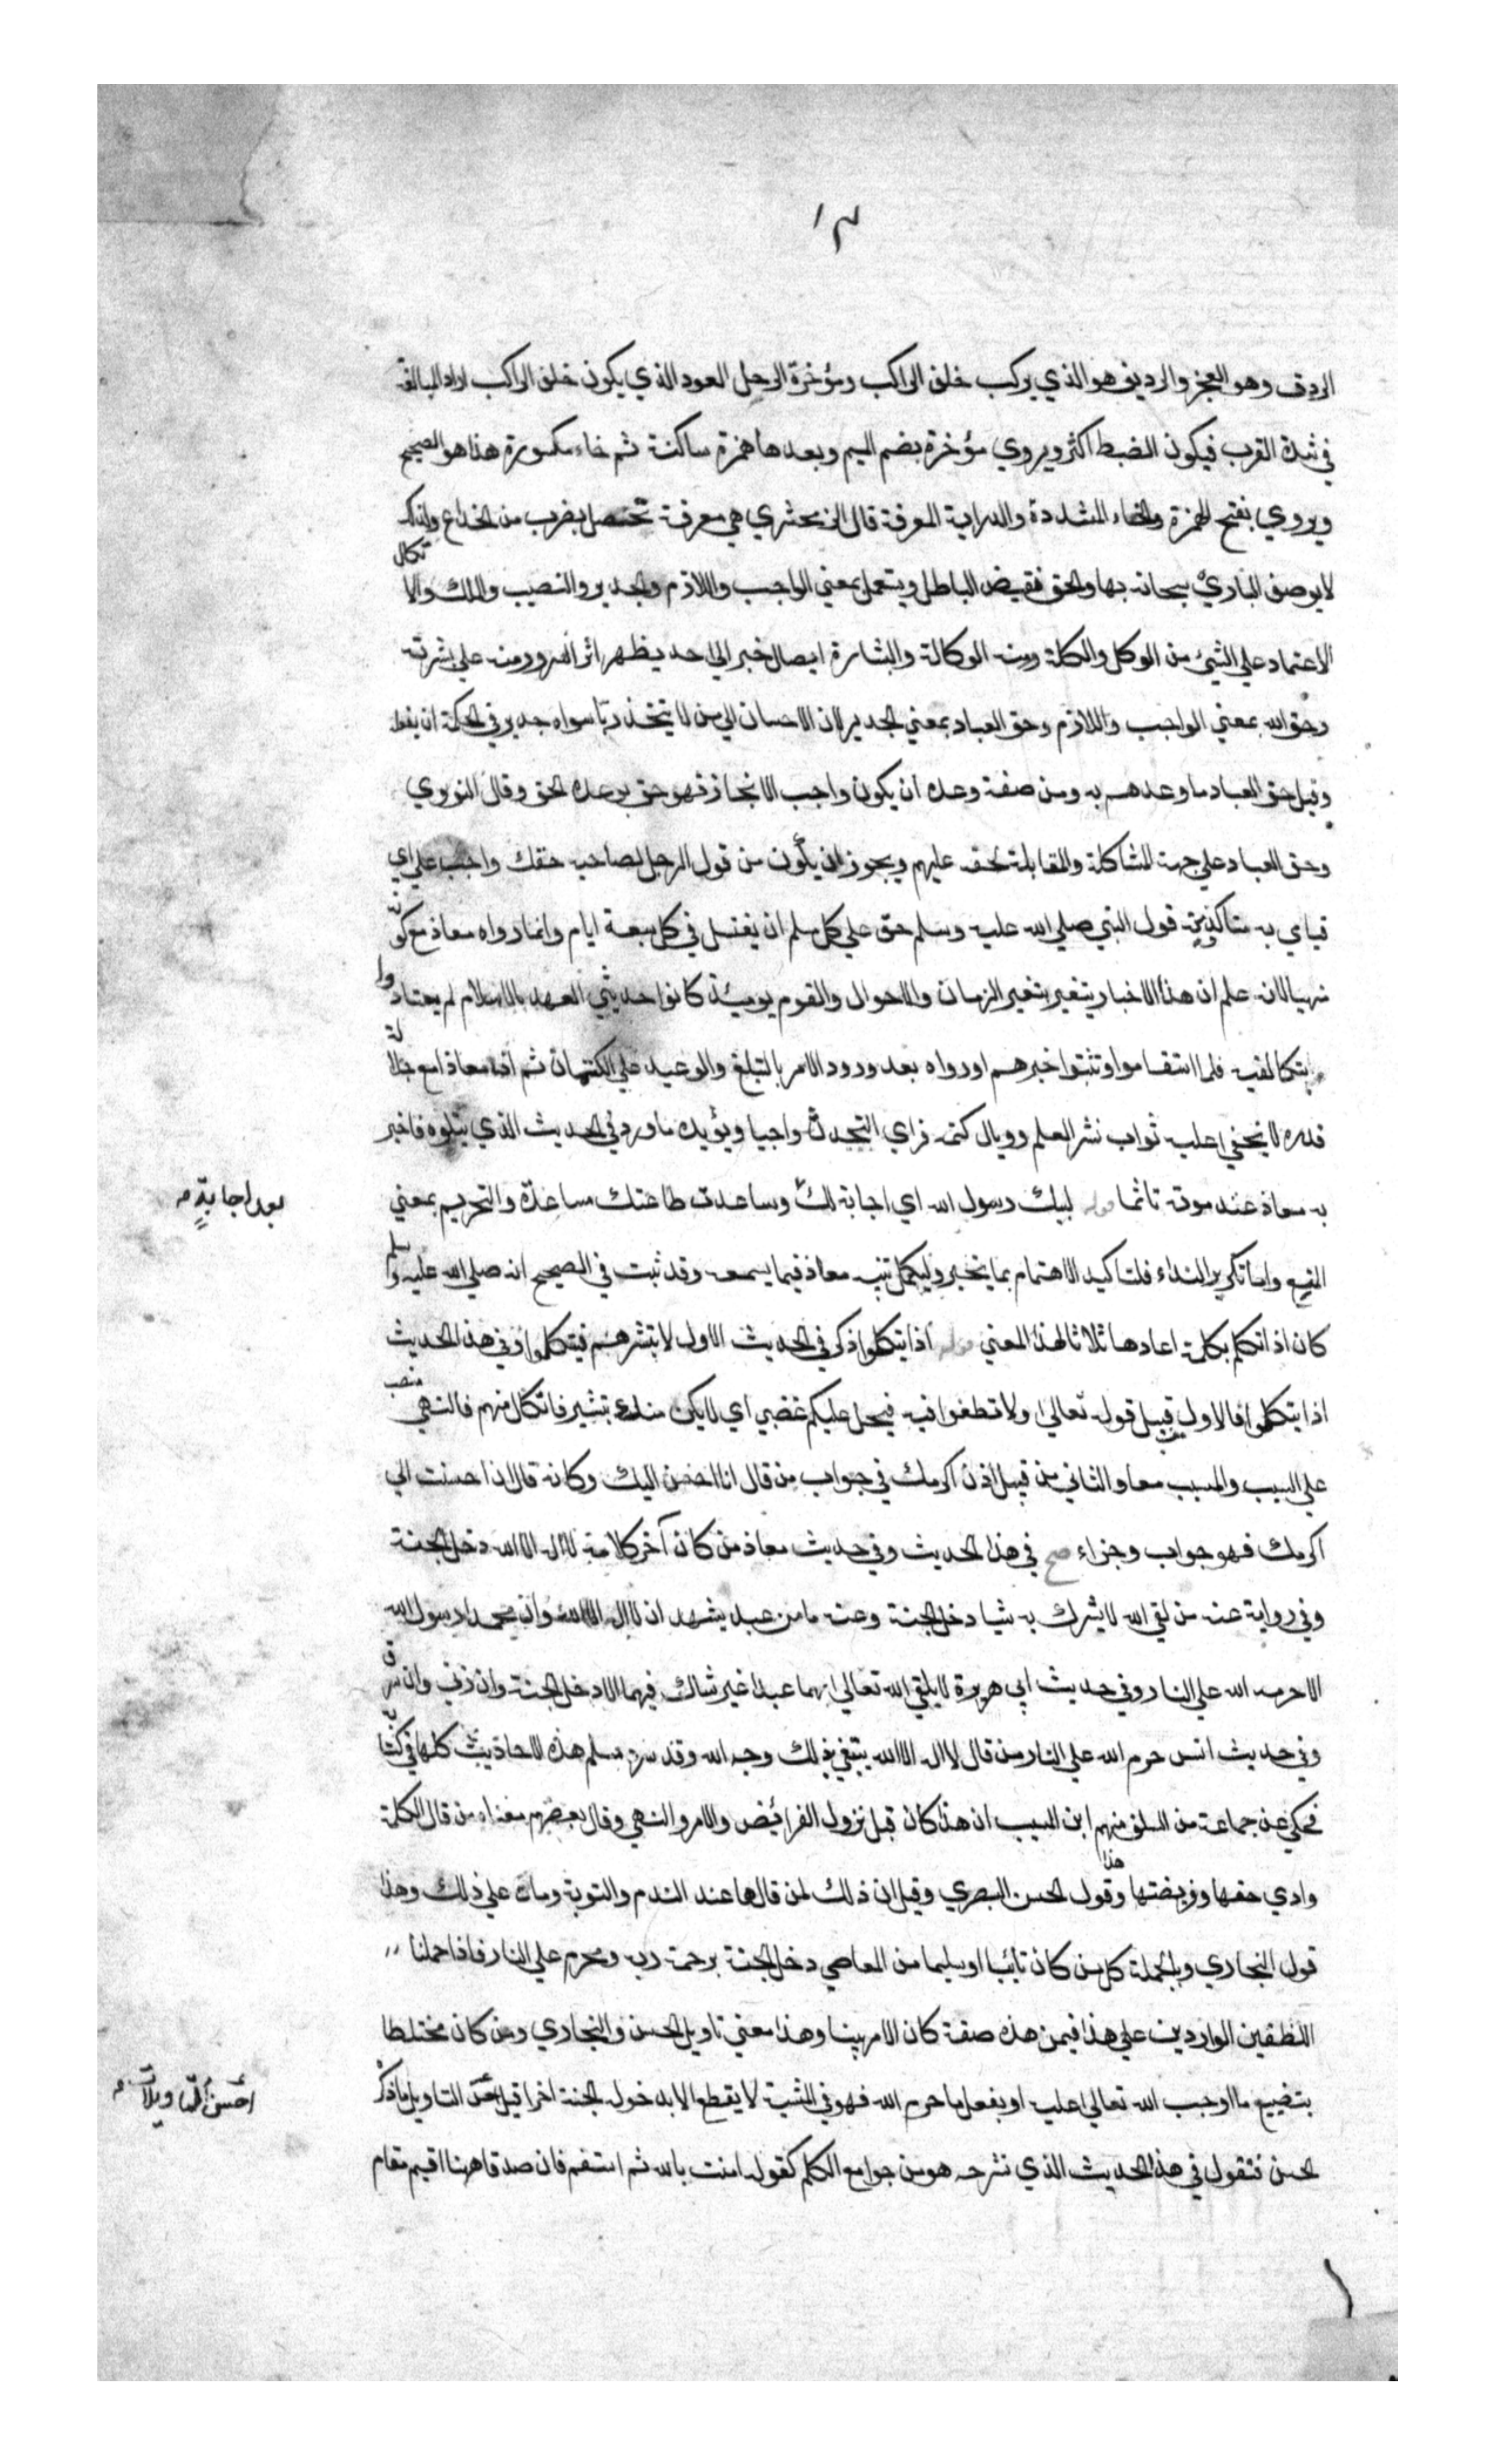 ١٣
الردف وهو العجز والرديف هو الذي يركب خلف الراكب ومؤخرة الرحل العود الذي يكون خلف الراكب اراد المبالغة
في شدة القرب فيكون الضبط اكثر ويروي مؤخرة بضم الميم وبعدها همزة ساكنة ثم خاء مكسورة هذا هو الصحيح
ويروي بفتح الهمزة والخاء المشددة والدراية المعرفة قال الزمخشري هي معرفة تحصل بضرب من الخداع ولذلك
لا يوصف الباري سبحانه بها والحق نقيض الباطل ويستعمل بمعني الواجب واللازم والجدير والنصيب والملك والاتكال
الاعتماد علي الشيئ من الوكل والكلة ومنه الوكالة والبشارة ايصال خبر الي احد يظهر اثر السرور منه علي بشرته
وحق الله بمعني الواجب واللازم وحق العباد بمعني الجدير لان الاحسان الي من لا يتخذ ربا سواه جدير في الحكمة ان يفعل
وقيل حق العباد ما وعدهم به ومن صفة وعده ان يكون واجب الانجاز فهو حق بوعده الحق وقال النووي
وحق العباد علي جهة المشاكلة والمقابلة لحقه عليهم ويجوز ان يكون من قول الرجل لصاحبه حقك واجب علي اي
قيامي به متاكد ومنه قول النبي صلي الله عليه وسلم حق علي كل مسلم ان يغتسل في كل سبعة ايام وانما رواه معاذ مع كونه
نهيا لانه علم ان هذا الاخبار يتغير بتغير الزمان والاحوال والقوم يومئذ كانوا حديثي العهد بالاسلام لم يعتادوا
بتكاليفه فلما استقاموا وتثبتوا خبرهم او رواه بعد ورود الامر بالتبليغ والوعيد علي الكتمان ثم ان معاذا مع جلالة
قدره لا يخفي عليه ثواب نشر العلم ووبال كتمه فراي التحدث واجبا ويؤيده ما ورد في الحديث الذي يتلوه فاخبر
به معاذ عند موته تاثما قوله لبيك رسول الله اي اجابة لك وساعدت طاعتك مساعدة والتحريم بمعني
بعد اجابة
المنع واما تكرير النداء فلتاكيد الاهتمام بما يخبر وليكمل تنبه معاذ فيما يسمعه وقد ثبت في الصحيح انه صلي الله عليه وسلم
كان اذا تكلم بكلمة اعادها ثلاثا لهذا المعني قوله اذا يتكلوا ذكر في الحديث الاول لا تبشرهم فيتكلوا وفي هذا الحديث
اذا يتكلوا فالاول قبيل قوله تعالي ولا تطغوا فيه فيحل عليكم غضبي اي لا يكن منك تبشير فاتكال منهم فالنهي منصب
علي السبب والمسبب معا والثاني من قبيل اذن اكرمك في جواب من قال انا احسن اليك وكانه قال ان احسنت الي
اكرمك فهو جواب وجزاء صح في هذا الحديث وفي حديث معاذ من كان آخر كلامه لا اله الا الله دخل الجنة
وفي رواية عنه من لقي الله لا يشرك به شيا دخل الجنة وعنه ما من عبد يشهد ان لا اله الا الله وان محمدا رسول الله
الا حرمه الله علي النار وفي حديث ابي هريرة لا يلقي الله تعالي بهما عبد غير شاك فيهما الا دخل الجنة وان زني وان سرق
وفي حديث انس حرم الله علي النار من قال لا اله الا الله يبتغي بذلك وجه الله وقد سرد مسلم هذه الاحاديث كلها في كتابه
فحكي عن جماعة من السلف منهم ابن المسيب ان هذا كان قبل نزول الفرائض والامر والنهي وقال بعضهم معناه من قال الكلمة
وادي حقها وفريضتها وهذا قول الحسن البصري وقيل ان ذلك لمن قالها عند الندم والتوبة ومات علي ذلك وهذا
قول البخاري وبالجملة كل من كان تائبا او سليما من المعاصي دخل الجنة برحمة ربه ومحرم علي النار فاذا حملنا
اللفظين الواردين علي هذا فيمن هذه صفة كان الامر بينا وهذا معني تاويل الحسن والبخاري ومن كان مختلطا
بتضييع ما اوجب الله تعالي عليه او بفعل ما حرم الله فهو في المشية لا يقطع الا بدخول الجنة اخرا قيل احسن التاويل ما ذكر
احسن التاويلات
الحسن فنقول في هذا الحديث الذي نشرحه هو من جوامع الكلم كقوله امنت بالله ثم استقم فان صدقا هنا اقيم مقام